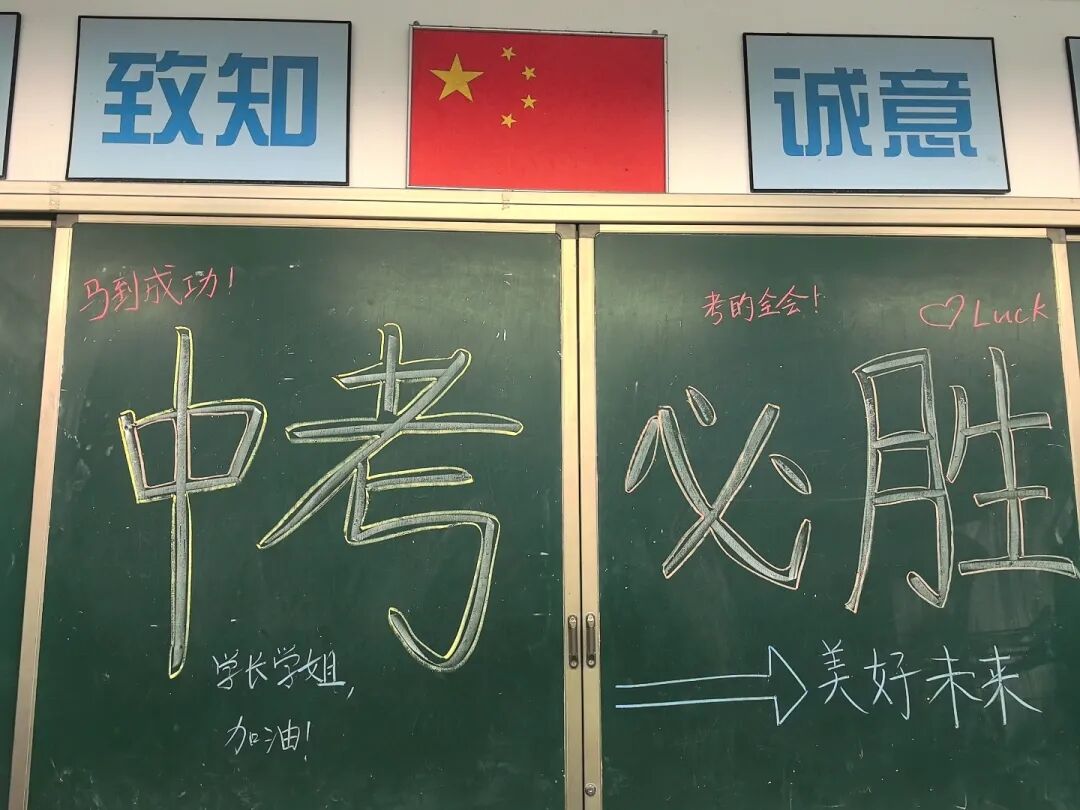 致知
诚意
马到成功!
考的全会!
♡Luck
中考
必胜
学长学姐,
加油!
美好未来